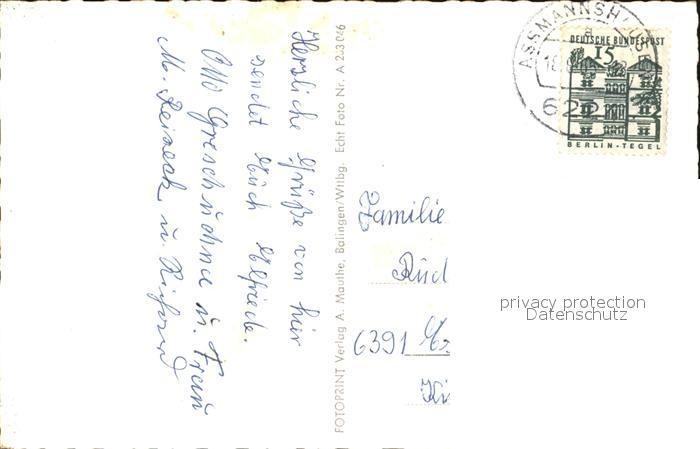 Herzliche Grüße von hier
sendet Euch Elfriede.
Otto u. Frau
M. u. Richard
FOTOPRINT Verlag A. Mauthe, Balingen/Wttbg. Echt Foto Nr. A 2-3046
ASSMANNSHAUSE
a
18
622
DEUTSCHE BUNDESPOST
15
BERLIN-TEGEL
Familie
Rud
6391
privacy protection
Datenschutz